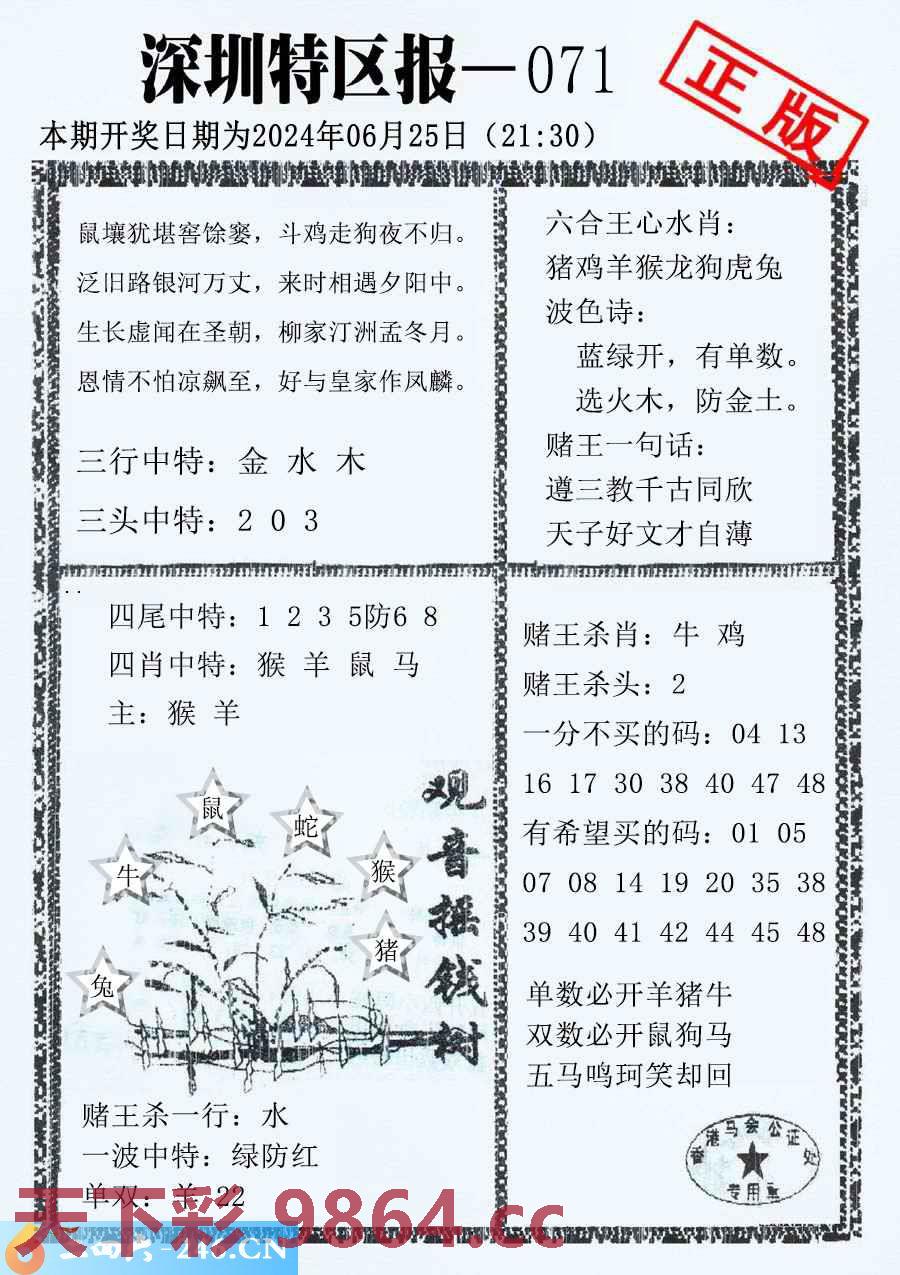 深圳特区报—071
正版
本期开奖日期为2024年06月25日（21:30）
鼠壤犹堪窖馀窭，斗鸡走狗夜不归。
泛旧路银河万丈，来时相遇夕阳中。
生长虚闻在圣朝，柳家汀洲孟冬月。
恩情不怕凉飙至，好与皇家作凤麟。
三行中特：金 水 木
三头中特：2 0 3
六合王心水肖：
猪鸡羊猴龙狗虎兔
波色诗：
蓝绿开，有单数。
选火木，防金土。
赌王一句话：
遵三教千古同欣
天子好文才自薄
四尾中特：1 2 3 5防6 8
四肖中特：猴 羊 鼠 马
主：猴 羊
鼠
蛇
牛
猴
猪
兔
观音摇钱树
赌王杀一行：水
一波中特：绿防红
单双：羊 22
赌王杀肖：牛 鸡
赌王杀头：2
一分不买的码：04 13
16 17 30 38 40 47 48
有希望买的码：01 05
07 08 14 19 20 35 38
39 40 41 42 44 45 48
单数必开羊猪牛
双数必开鼠狗马
五马鸣珂笑却回
香港马会公证处
专用章
天下彩 9864.cc